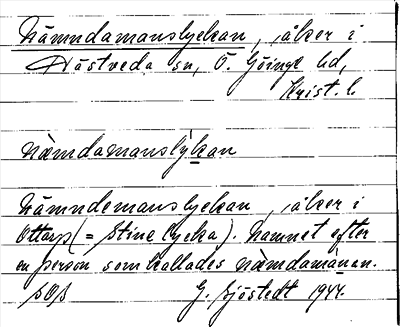 Nämndamanslyckan, åker i
Hästveda sn, Ö. Göinge hd,
Krist. l.
næmdamanslýkan
Nämndemanslyckan, åker i
Ottarp (= Stine lycka). Namnet efter
en person som kallades næmdamánan.
G. Sjöstedt 1944.